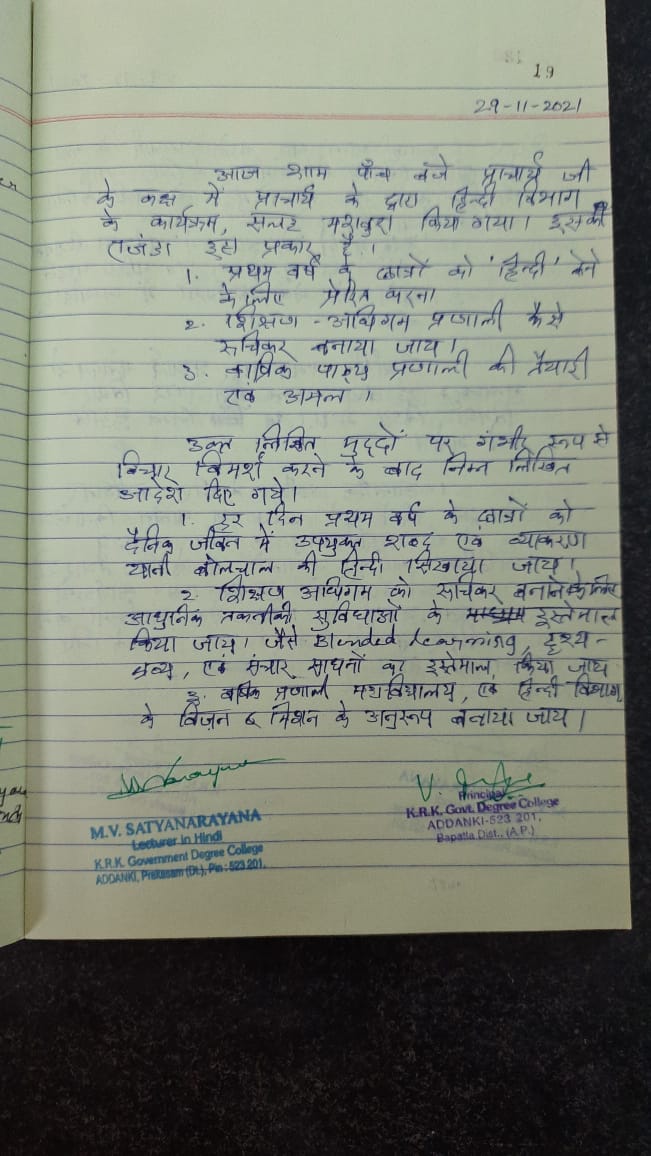 19
29-11-2021
आज शाम पाँच बजे प्राचार्य जी
के कक्ष में प्राचार्य के द्वारा हिन्दी विभाग
के कार्यक्रम, सलह मशवुरा किया गया। इसकी
एजंडा इस प्रकार है।
1. प्रथम वर्ष के छात्रों को 'हिन्दी' लेने
के लिए प्रेरित करना
2. शिक्षण - अधिगम प्रणाली कैसे
रुचिकर बनाया जाय।
3. वार्षिक पाठ्य प्रणाली की तैयारी
एवं अमल।
उक्त लिखित मुद्दों पर गंभीर रूप से
विचार विमर्श करने के बाद निम्न लिखित
आदेश दिए गये।
1. हर दिन प्रथम वर्ष के छात्रों को
दैनिक जीवन में उपयुक्त शब्द एवं व्याकरण
यानी बोलचाल की हिन्दी सिखाया जाय।
2. शिक्षण अधिगम को रुचिकर बनाने के लिए
आधुनिक तकनीकी सुविधाओं के इस्तेमाल
किया जाय। जैसे Blended learning, दृश्य -
श्रव्य, एवं संचार साधनों का इस्तेमाल किया जाय
3. वर्षिक प्रणाली महाविद्यालय, एवं हिन्दी विभाग
के विज़न & मिशन के अनुरूप बनाया जाय।
M.V. SATYANARAYANA
Lecturer in Hindi
K.R.K. Government Degree College
ADDANKI, Prakasam (Dt.), Pin : 523 201.
Principal
K.R.K. Govt. Degree College
ADDANKI-523 201.
Bapatla Dist., (A.P.)